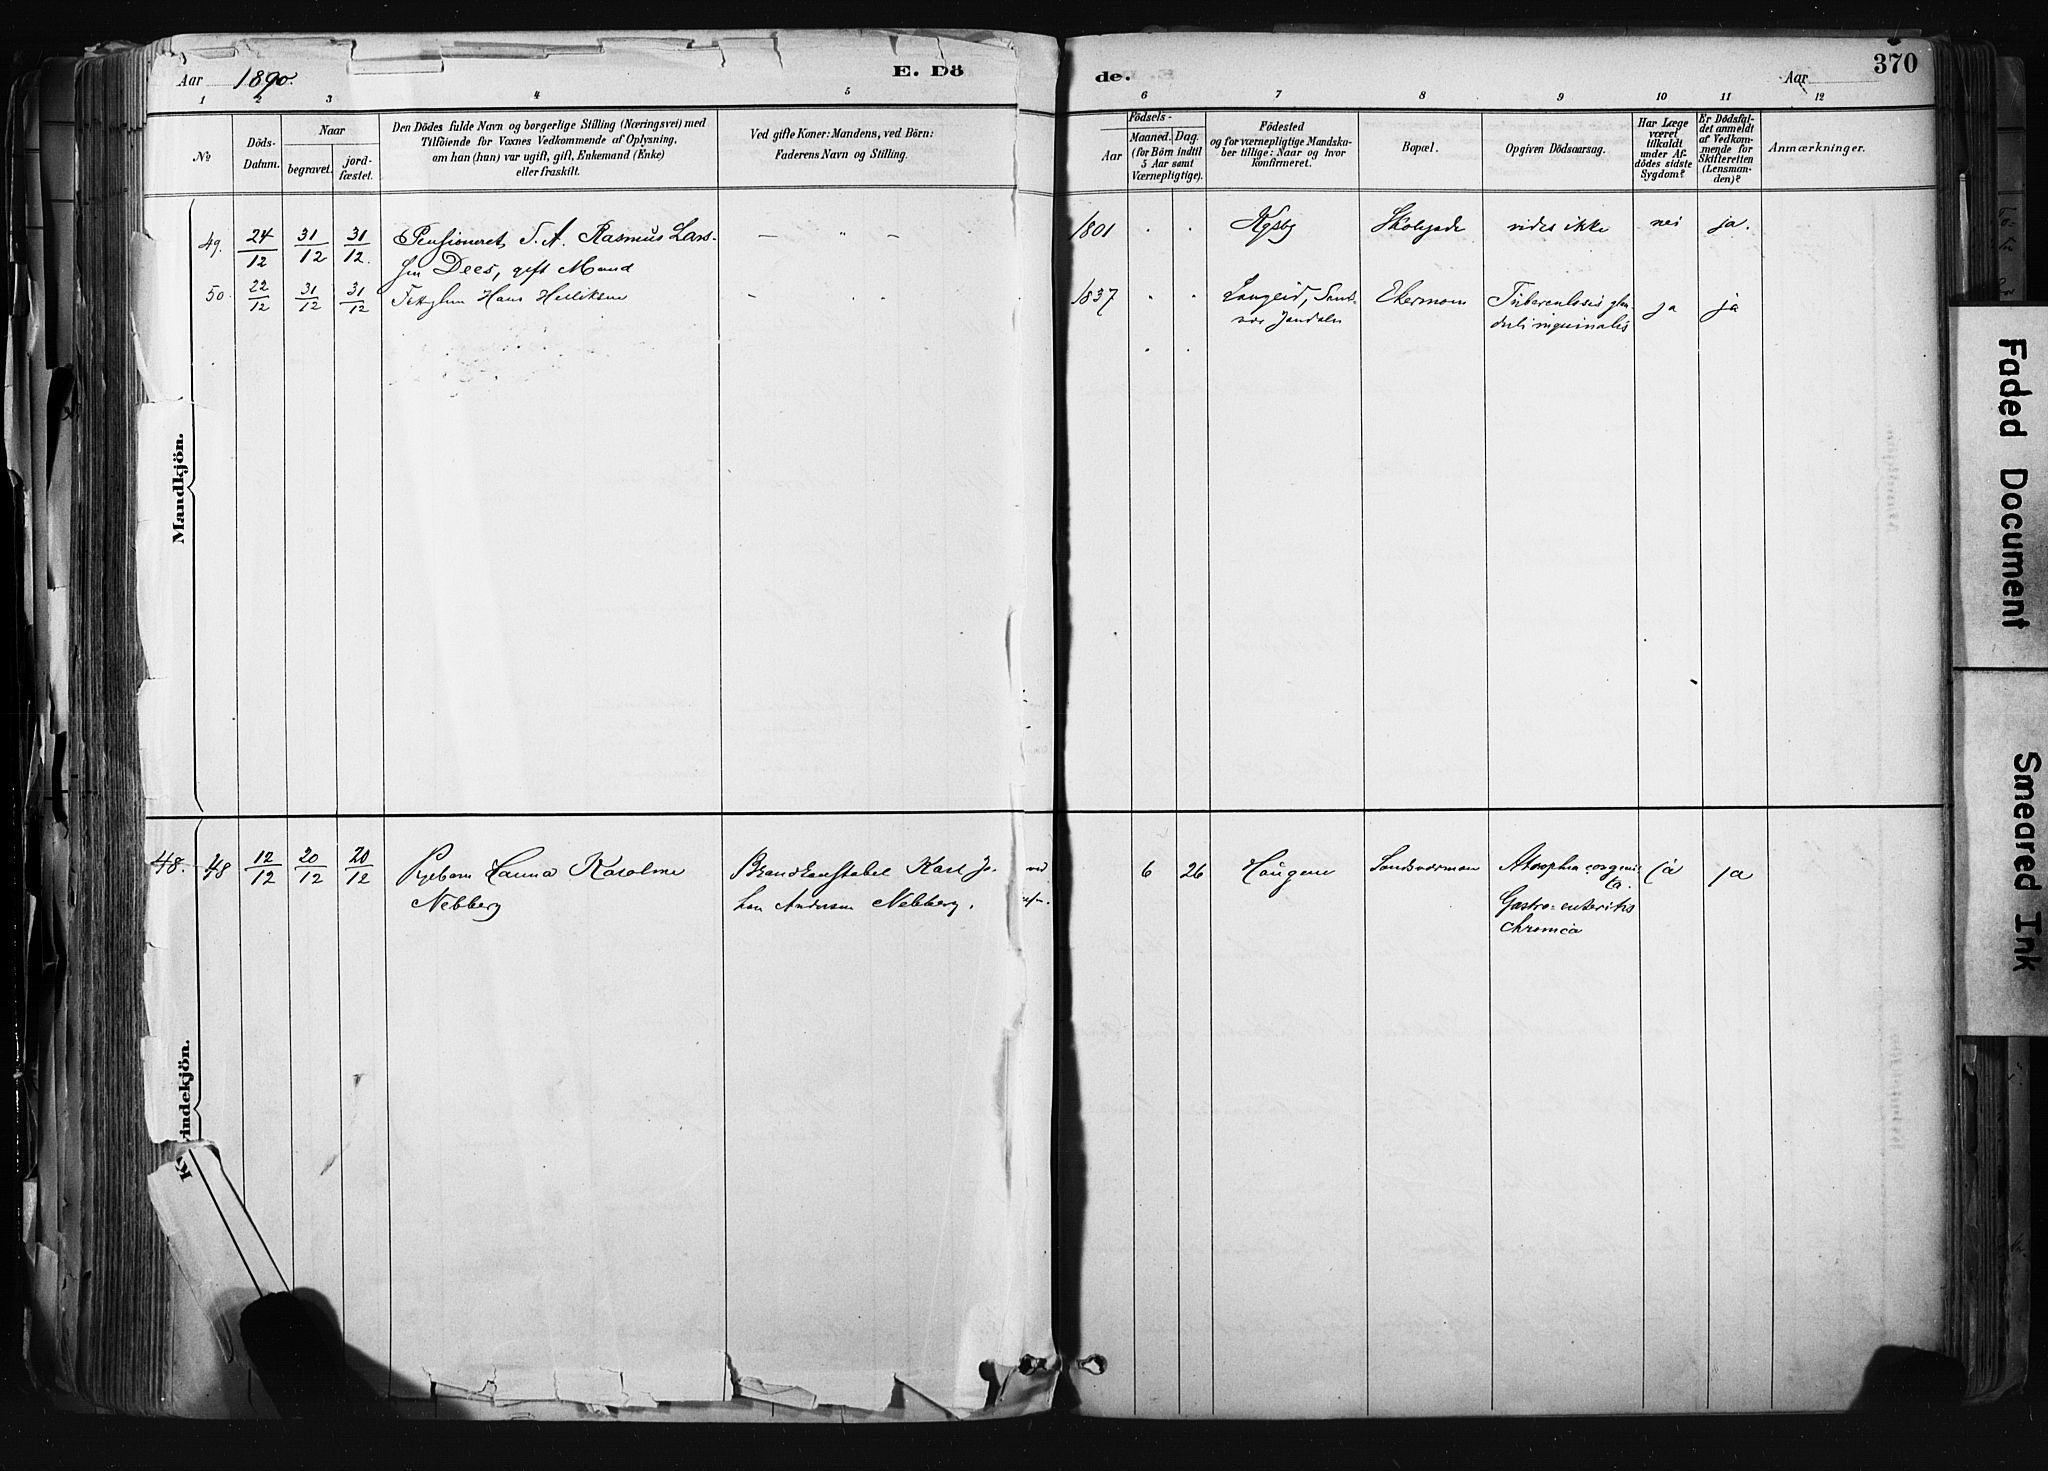 Aar 1890.
E. Dö
de.
Aar
370
1 2 3 4 5 6 7 8 9 10 11 12
№
Döds-
Datum.
Naar
begravet.
jord-
fæstet.
Den Dödes fulde Navn og borgerlige Stilling (Næringsvei) med
Tilföiende for Voxnes Vedkommende af Oplysning,
om han (hun) var ugift, gift, Enkemand (Enke)
eller fraskilt.
Ved gifte Koner: Mandens, ved Börn:
Faderens Navn og Stilling.
Födsels-
Aar
Maaned. Dag.
(for Börn indtil
5 Aar samt
Værnepligtige).
Födested
og for værnepligtige Mandska-
ber tillige: Naar og hvor
konfirmeret.
Bopæl.
Opgiven Dödsaarsag.
Har Læge
været
tilkaldt
under Af-
dödes sidste
Sygdom?
Er Dödsfal-
det anmeldt
af Vedkom-
mende for
Skifteretten
(Lensman-
den)?
Anmærkninger.
Mandkjön.
49. 24/12 31/12 31/12. Pensioneret S. A. Rasmus Lars-
sen Dees, gift Mand
— " —
1801 Kgsbg vides ikke nei ja.
50. 22/12 31/12 31/12 Hans
1837 Tuberculosis glan-
duli inguinalis
ja ja
Kvindekjön.
48. 48 12/12 20/12 20/12 Pigebarn Hanna Karoline
Nebberg
Brandkonstabel Karl Jo-
han Andersen Nebberg.
6 26 Haugene Sandsværmoen Atrophia congeni-
ta.
Gastro-enteritis
chronica
ja ja
Faded Document
Smeared Ink